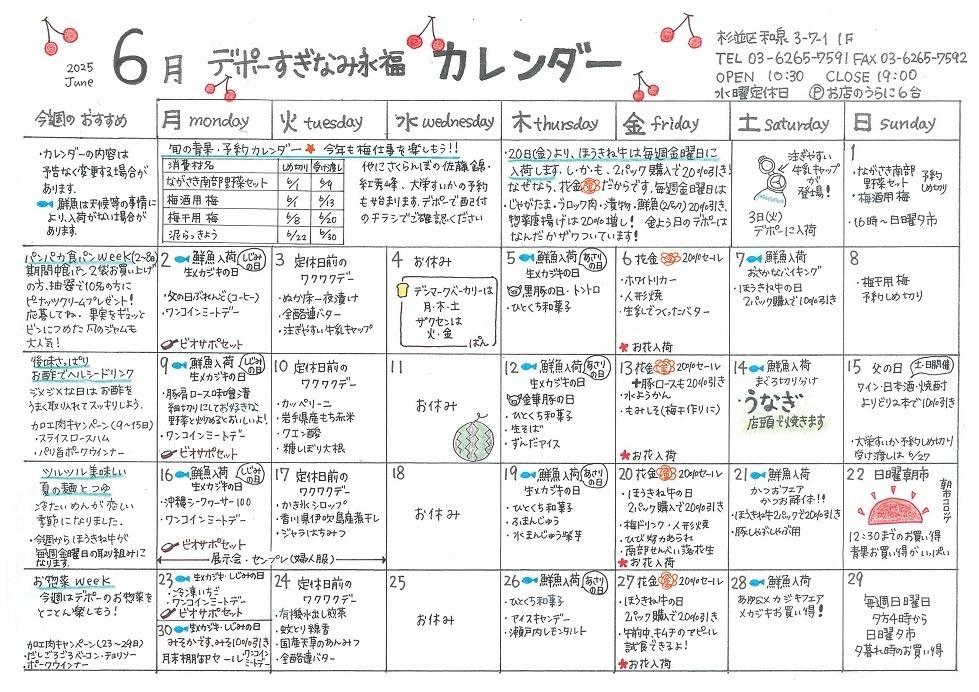 2025
June
6月 デポーすぎなみ永福 カレンダー
杉並区和泉 3-7-1 1F
TEL 03-6265-7591 FAX 03-6265-7592
OPEN 10:30 CLOSE 19:00
水曜定休日 Ⓟお店のうらに6台
今週のおすすめ
月 monday
火 tuesday
水 wednesday
木 thursday
金 friday
土 saturday
日 sunday
・カレンダーの内容は
予告なく変更する場合が
あります。
・鮮魚は天候等の事情に
より、入荷がない場合が
あります。
旬の青果・予約カレンダー 今年も梅仕事を楽しもう!!
消費材名 しめ切り 受け渡し
ながさき南部野菜セット 6/1 6/9
梅酒用梅 6/1 6/13
梅干用梅 6/8 6/20
泥らっきょう 6/22 6/30
他にさくらんぼの佐藤錦・
紅秀峰、大学すいかの予約
も始まります。デポーで配付
のチラシでご確認ください
・20日(金)より、ほうきね牛は毎週金曜日に
入荷します。しかも、2パック購入で20%引き!
なぜなら、花金だからです。毎週金曜日は
・じゃがたま・うロック肉・漬物・鮮魚(2パック)20%引き、
惣菜唐揚げは20%増し! 金よう日のデポーは
なんだかザワついています!
注ぎやすい
牛乳キャップが
登場!
3日(火)
デポーに入荷
1
・ながさき南部
野菜セット
・梅酒用梅
予約
しめ切り
・16時〜日曜夕市
パンパカ食パンweek(2〜8日)
期間中食パン2袋お買い上げ
の方、抽選で10名の方に
ピーナッツクリームプレゼント!
応募してね。果実をギュッと
ビンにつめた 凡のジャムも
大人気!
2 鮮魚入荷 しじみの日
生メカジキの日
・父の日ぶれんど(コーヒー)
・ワンコインミートデー
ビオサポセット
3 定休日前の
ワクワクデー
・ぬか床一夜漬け
・全酪連バター
・注ぎやすい牛乳キャップ
4 お休み
デンマークベーカリーは
月・木・土
ザクセンは
火・金
ぱん
5 鮮魚入荷 あさりの日
生メカジキの日
黒豚の日・トントロ
・ひとくち和菓子
6 花金 20%セール
・ホワイトリカー
・人形焼
・生乳でつくったバター
お花入荷
7 鮮魚入荷
おさかなバイキング
・ほうきね牛の日
2パック購入で10%引き
8
・梅干用梅
予約しめ切り
後味さっぱり
お酢でヘルシードリンク
ジメジメな日はお酢を
うまく取り入れてスッキリしよう。
加工肉キャンペーン(9〜15日)
・スライスロースハム
・パリ旨ポークウインナー
9 鮮魚入荷 しじみの日
生メカジキの日
・豚肩ロース味噌漬
細切りにしてお好きな
野菜と炒めるとおいしいよ!
・ワンコインミートデー
ビオサポセット
10 定休日前の
ワクワクデー
・カッペリーニ
・岩手県産もち赤米
・クエン酸
・糖しぼり大根
11
お休み
12 鮮魚入荷 あさりの日
生メカジキの日
金華豚の日
・ひとくち和菓子
・生そば
・ずんだアイス
13 花金 20%セール
+豚ロースも20%引き
・水ようかん
・もみしそ(梅干作りに)
お花入荷
14 鮮魚入荷
まぐろ切り分け
・うなぎ
店頭で焼きます
15 父の日 土・日開催
ワイン・日本酒・焼酎
よりどり2本で10%引き
・大学すいか予約しめ切り
受け渡しは6/27
ツルツル美味しい
夏の麺とつゆ
冷たいめんが恋しい
季節になりました。
・今週からほうきね牛が
毎週金曜日の取り組みに
なります。
16 鮮魚入荷 しじみの日
生メカジキの日
・沖縄シークヮーサー100
・ワンコインミートデー
ビオサポセット
17 定休日前の
ワクワクデー
・かき氷シロップ
・香川県伊吹島産煮干し
・ジャラはちみつ
展示会・センプレ(婦人服)
18
お休み
19 鮮魚入荷 あさりの日
生メカジキの日
・ひとくち和菓子
・ふまんじゅう
・水まんじゅう紫芋
20 花金 20%セール
・ほうきね牛の日
2パック購入で20%引き
・梅ドリンク・人形焼
・ひび焼あられ
・南部せんべい落花生
お花入荷
21 鮮魚入荷
かつおフェア
かつお解体!!
・ほうきね牛2パックで10%引き
・豚しゃぶしゃぶ用
22 日曜朝市
朝市コロッケ
12:30までのお買い得
青果お買い得がいっぱい
お惣菜week
今週はデポーのお惣菜を
とことん楽しもう!
加工肉キャンペーン(23〜29日)
・だしごろごろベーコン・チョリソー
・ポークウインナー
23 生メカジキ・しじみの日
・冷凍いちご
・ワンコインミートデー
ビオサポセット
30 生メカジキ・しじみの日
みそかです、みそ10%引き
月末棚卸セール ワンコインミートデー
24 定休日前の
ワクワクデー
・有機水出し煎茶
・蚊とり線香
・国産天草のあんみつ
・全酪連バター
25
お休み
26 鮮魚入荷 あさりの日
・ひとくち和菓子
・アイスキャンデー
・瀬戸内レモンタルト
27 花金 20%セール
・ほうきね牛の日
2パック購入で20%引き
・午前中、キムチのアピール
試食できるよ!
お花入荷
28 鮮魚入荷
あゆ&メカジキフェア
メカジキお買い得!
29
毎週日曜日
夕方4時から
日曜夕市
夕暮れ時のお買い得